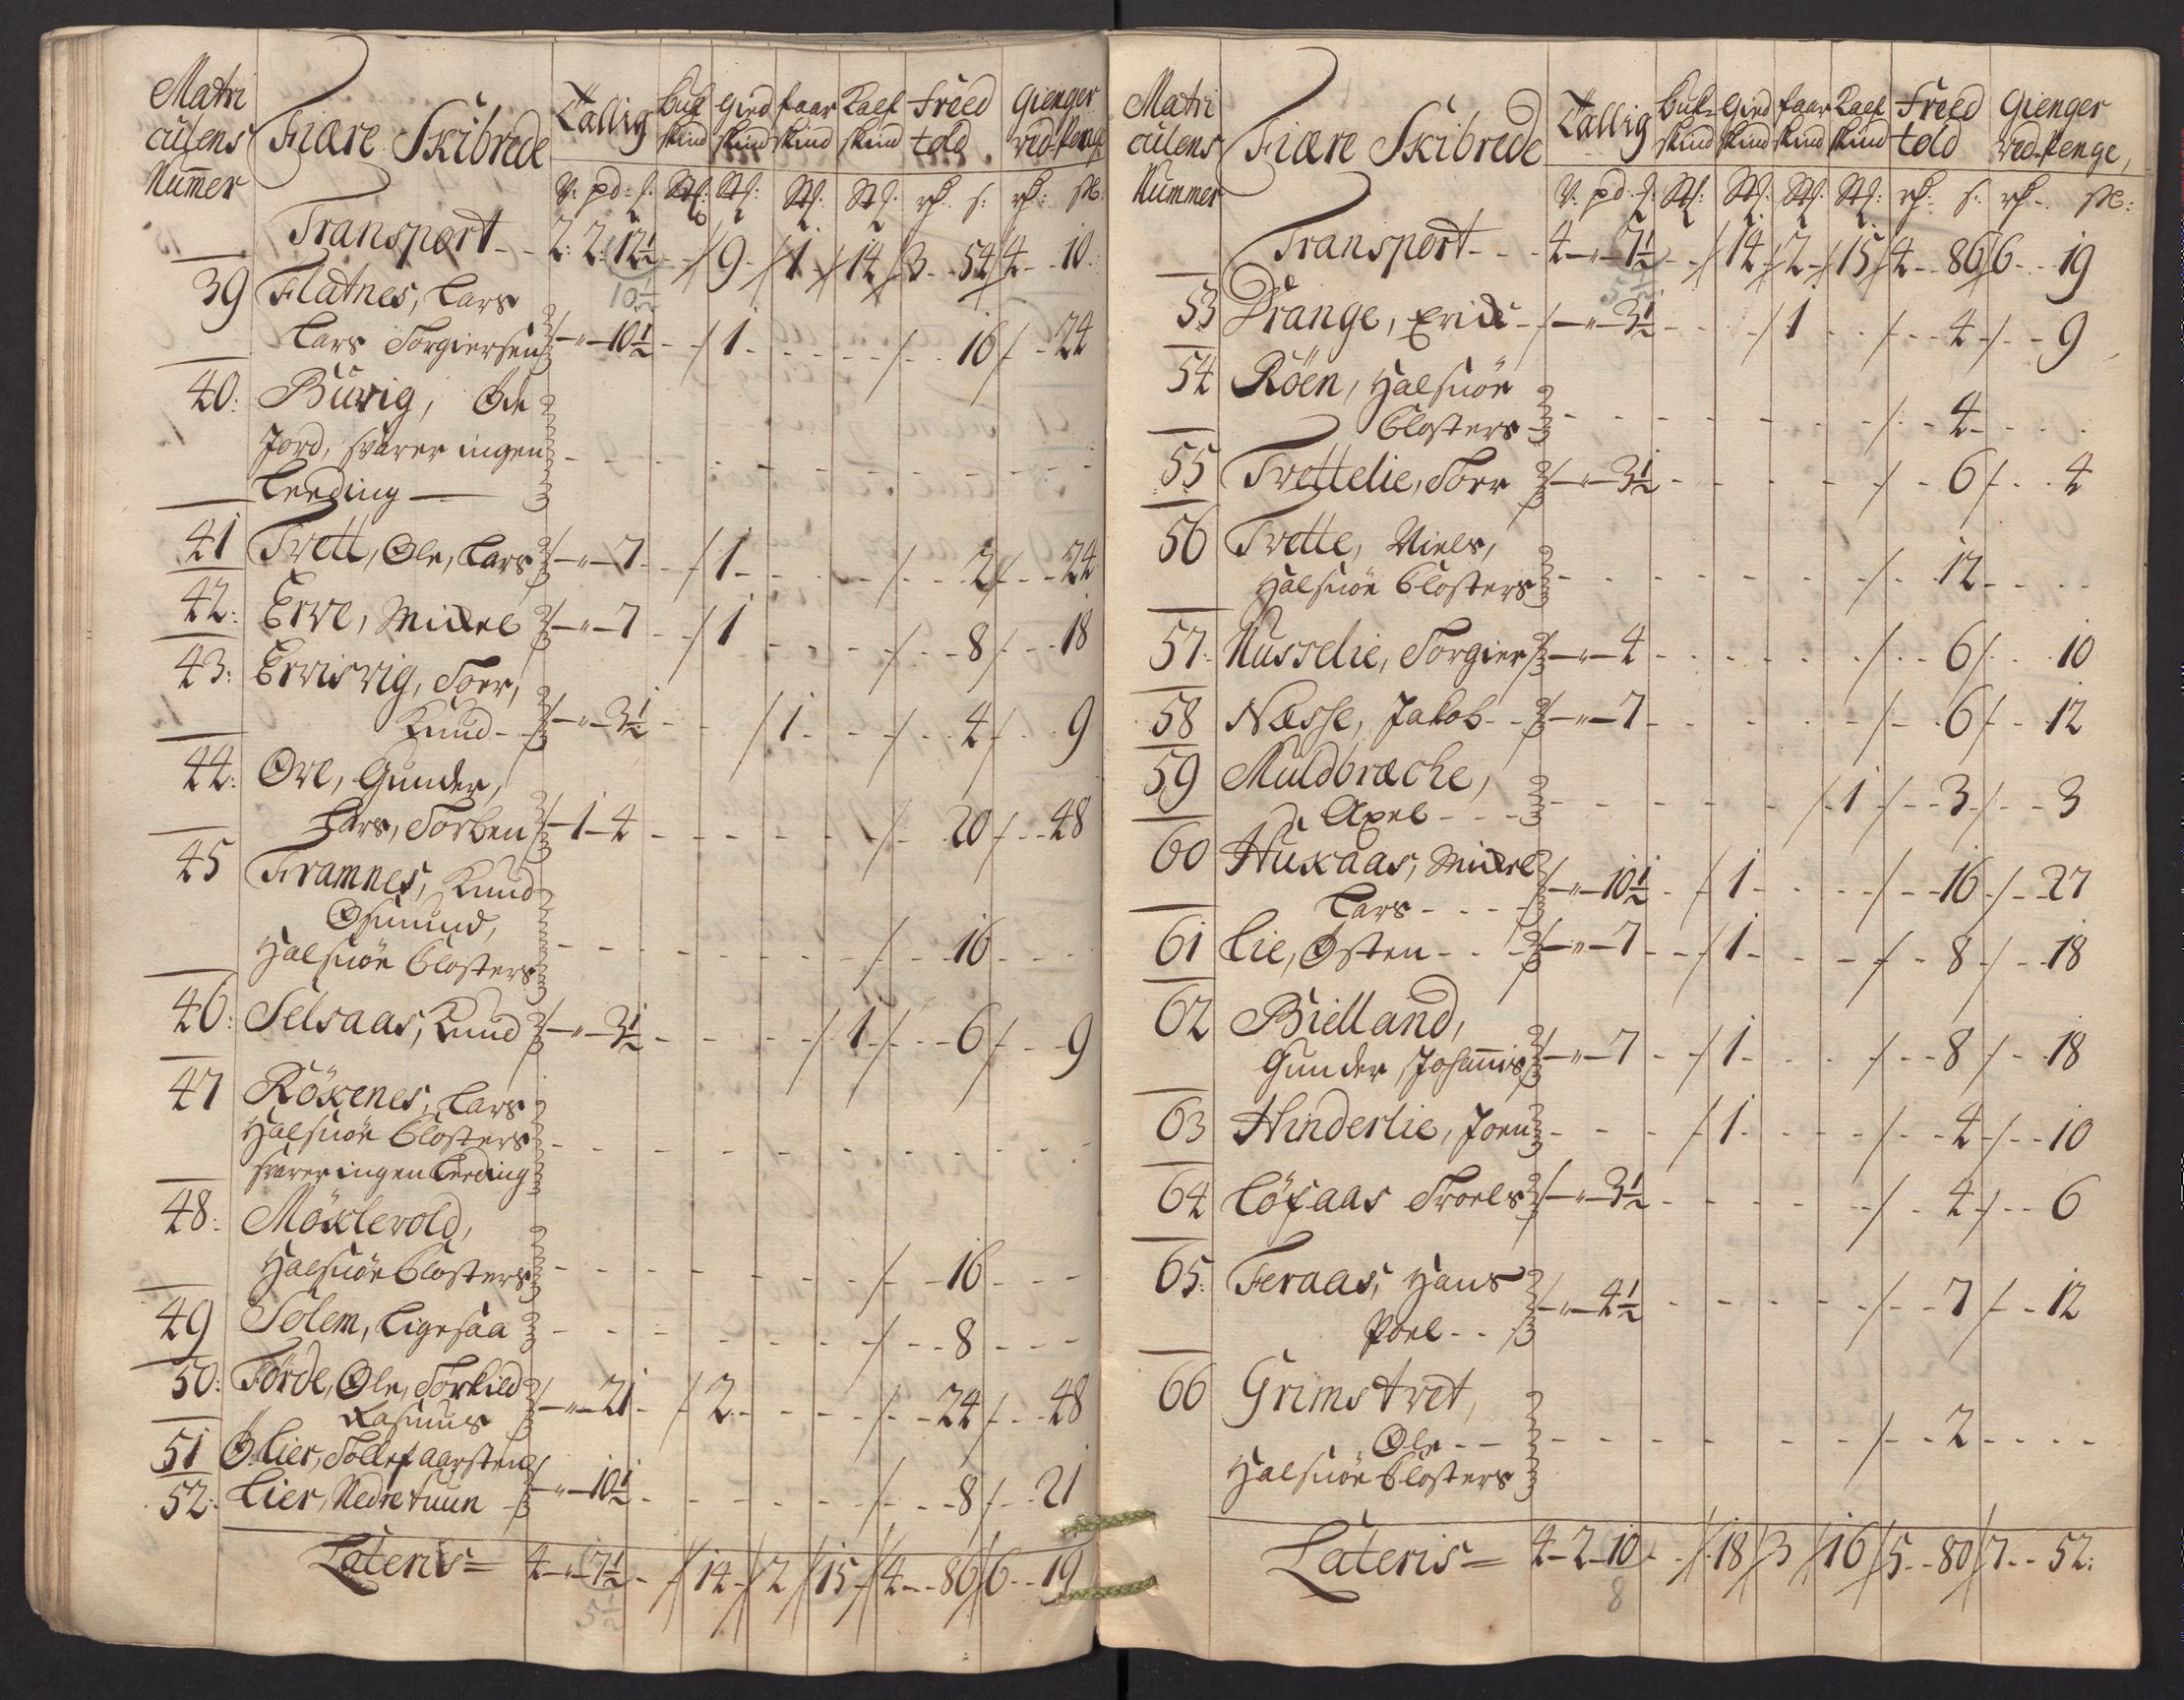 Matri
culens
Nummer
Fiære Skibrede
Tallig
Buk skind
Gied skind
faar skind
Kalf skind
Freed told
Gienger ved Penge
V: pd: s: St: St: St: St: rd. s: rd: sk:
Transport - - 2: 2: 12½ - / 9 - / 1 / 14 / 3 - 54 / 4 - 10
10½
39 Flatnes, Lars
Lars Torgiersen / - „ - 10½ - - / 1 - - - - - / - - 16 / - - 24
40: Buvig, Øde
Jord, svarer ingen
Leeding
41 Tvett, Ole, Lars / - „ - 7 - - / 1 - - - - / - - 2 / - - 24
42: Erve, Mickel / - „ - 7 - - / 1 - - - - / - - 8 / - - 18
43: Ervisvig, Toer,
Knud - - / - „ - 3½ - - - / 1 - - / - - 4 / - - 9
44: Ove, Gunder,
Lars, Torben / - 1 - 4 - - - - - / - 20 / - - 48
45 Framnes, Knud
Osmund,
Halsnöe Closters - - - - - - / - - 16 - - -
46: Selsaas, Knud / - „ - 3½ - - - - / 1 / - - 6 / - - 9
47 Röxenes, Lars
Halsnöe Closters
svarer ingen Leeding
48: Möxlevold,
Halsnöe Closters - - - - - - / - - 16 - - -
49 Solem, Ligesaa - - - - - / - - 8 - - -
50: Förde, Ole, Torkild
Rasmus / - „ - 21 - / 2 - - - - / - - 24 / - - 48
51 Ö. Lier, Tollef Aarsten
52: Lier, Nedretuun / - „ - 10½ - - - - - / - - 8 / - - 21
Lateris = 4 - „ - 7½ - / 14 - / 2 / 15 / 4 - - 86 / 6 - - 19
5½
Matri
culens
Nummer
Fiære Skibrede
Tallig
Buk skind
Gied skind
faar skind
Kalf skind
Freed told
Gienger ved Penge,
V: pd: s: St: St: St: St: rd: s: rd: sk:
Transport - - - 4 - „ - 7½ - / 14 / 2 - / 15 / 4 - - 86 / 6 - - 19
5½
53 Drange, Erick - / - „ - 3½ - - - / 1 - - / - - 4 / - - 9
54 Röen, Halsnöe
Closters - - - - - - / - - 4 - - -
55 Tvettelie, Toer / - „ - 3½ - - - - - / - 6 / - - 4
56 Tvette, Niels,
Halsnöe Closters - - - - - - / - 12 - - -
57: Nusselie, Torgier / - „ - 4 - - - - - / - - 6 / - - 10
58 Næsse, Jakob - - / - „ - 7 - - - - - / - - 6 / - - 12
59 Muldbræche,
Axel - - - - - - - - / 1 / - - 3 / - - 3
60 Huxaas, Mickel
Lars - - - / - „ - 10½ - / 1 - - - - / - - 16 / - - 27
61 Lie, Østen - - / - „ - 7 - - / 1 - - - - / - 8 / - - 18
62 Bielland,
Gunder, Johannis / - „ - 7 - - / 1 - - - - / - - 8 / - - 18
63 Hinderlie, Joen - - - - / 1 - - - - / - - 4 / - - 10
64 Löfaas Troels / - „ - 3½ - - - - - / - 4 / - - 6
65: Feraas, Hans
Poel - - / - „ - 4½ - - - - - / - - 7 / - - 12
66 Grimstvet,
Ole - -
Halsnöe Closters - - - - - - / - - 2 - - - -
Lateris = 4 - 2 - 10 - / 18 / 3 / 16 / 5 - - 80 / 7 - - 52:
8